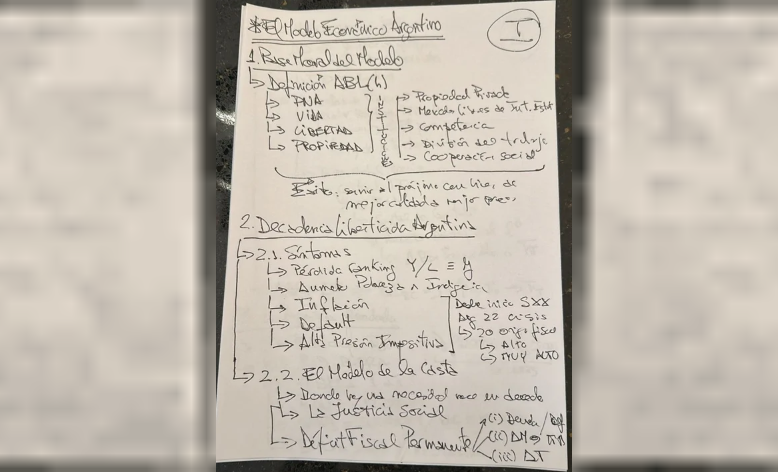 * El Modelo Económico Argentino
I
1. Base Moral del Modelo
Definición ABL(h)
PNA
VIDA
LIBERTAD
PROPIEDAD
Propiedad Privada
Mercados libres de Int. Estat
Competencia
División del trabajo
Cooperación social
Éxito: servir al prójimo con bienes de
mejor calidad a mejor precio
2. Decadencia Liberticida Argentina
2.1. Síntomas
Pérdida Ranking Y/L ≡ y
Aumento Pobreza ∧ Indigencia
Inflación
Default
Alta Presión Impositiva
Desde inicio SXX
22 crisis
20 origen fiscal
ALTO
MUY ALTO
2.2. El Modelo de la Casta
Donde hay una necesidad nace un derecho
La Justicia Social
Déficit Fiscal Permanente
(i) Deuda /
(ii) ΔM ⇒
(iii) ΔT